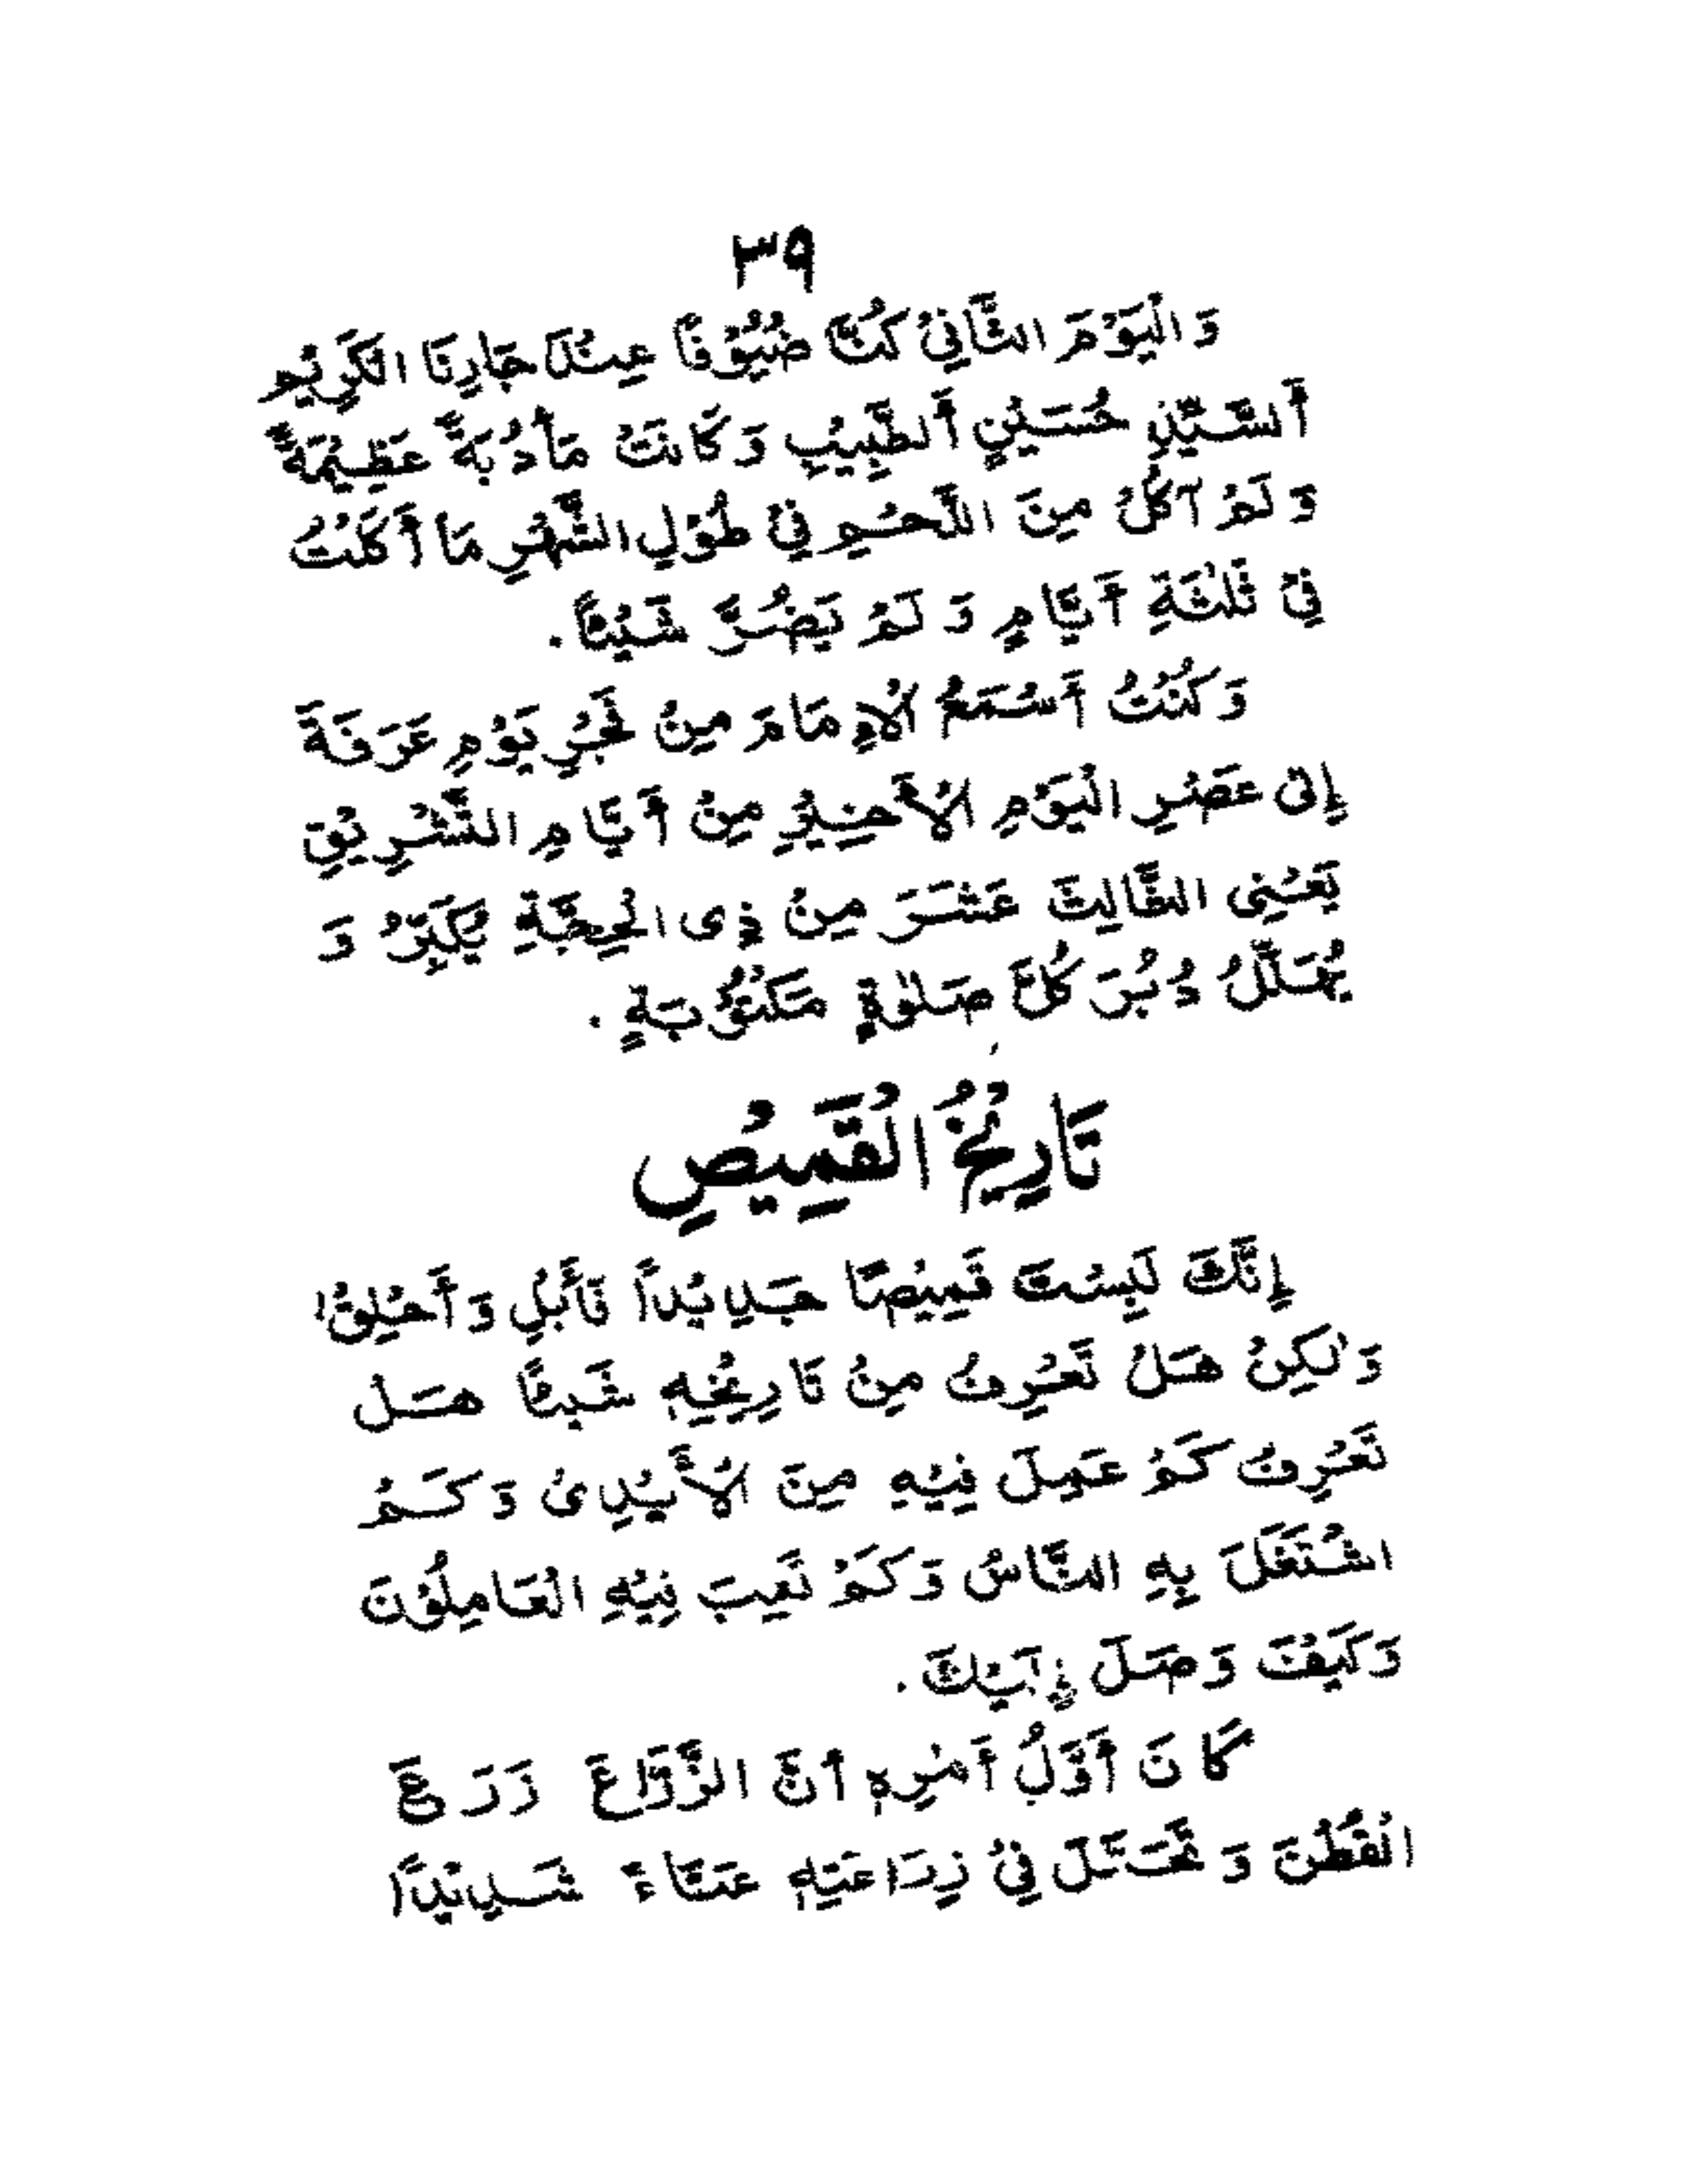 ٣٩
وَالْيَوْمَ الثَّانِيْ كُنَّا ضُيُوْفًا عِنْدَ جَارِنَا الْكَرِيْمِ
اَلسَّيِّدِ حُسَيْنٍ اَلطَّبِيْبِ وَكَانَتْ مَأْدُبَةً عَظِيْمَةً
وَلَمْ آكُلْ مِنَ اللَّحْمِ فِيْ طُوْلِ الشَّهْرِ مَا أَكَلْتُ
فِيْ ثَلٰثَةِ أَيَّامٍ وَلَمْ يَضُرَّ شَيْئًا.
وَكُنْتُ أَسْمَعُ الْإِمَامَ مِنْ فَجْرِ يَوْمِ عَرَفَةَ
إِلٰى عَصْرِ الْيَوْمِ الْأَخِيْرِ مِنْ أَيَّامِ التَّشْرِيْقِ
يَعْنِى الثَّالِثَ عَشَرَ مِنْ ذِى الْحِجَّةِ يُكَبِّرُ وَ
يُهَلِّلُ دُبُرَ كُلِّ صَلٰوةٍ مَكْتُوْبَةٍ.
تَارِيْخُ الْقَمِيْصِ
إِنَّكَ لَبِسْتَ قَمِيْصًا جَدِيْدًا فَأَبْلِ وَأَخْلِقْ!
وَلٰكِنْ هَلْ تَعْرِفُ مِنْ تَارِيْخِهٖ شَيْئًا هَلْ
تَعْرِفُ كَمْ عَمِلَ فِيْهِ مِنَ الْأَيْدِىْ وَكَمْ
اشْتَغَلَ بِهِ النَّاسُ وَكَمْ تَعِبَ فِيْهِ الْعَامِلُوْنَ
وَكَيْفَ وَصَلَ إِلَيْكَ.
كَانَ أَوَّلُ أَمْرِهٖ أَنَّ الزَّرَّاعَ زَرَعَ
الْقُطْنَ وَتَحَمَّلَ فِيْ زِرَاعَتِهٖ عَنَاءً شَدِيْدًا